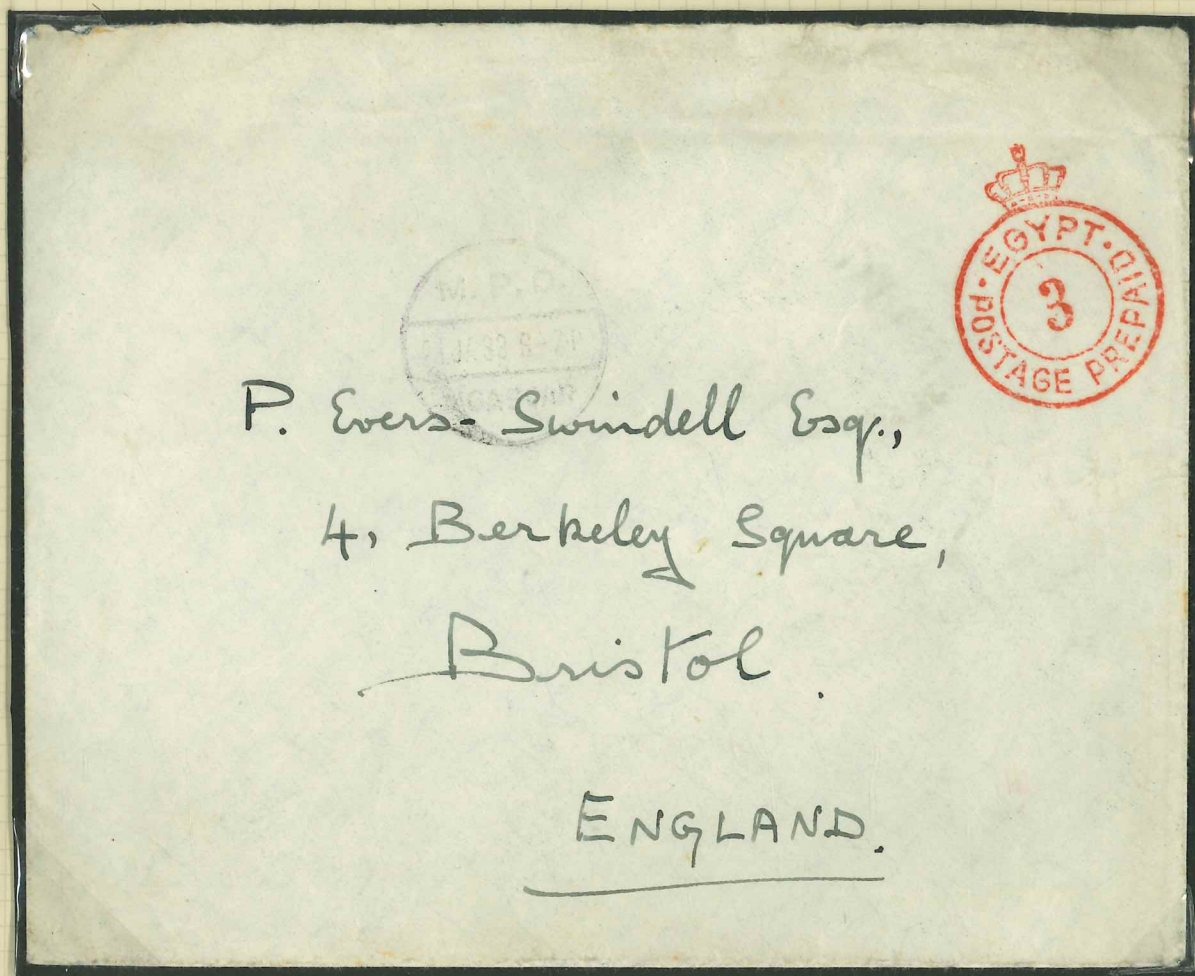 EGYPT
3
POSTAGE PREPAID
M. P. O.
P. Evers-Swindell Esq.,
4, Berkeley Square,
Bristol.
ENGLAND.